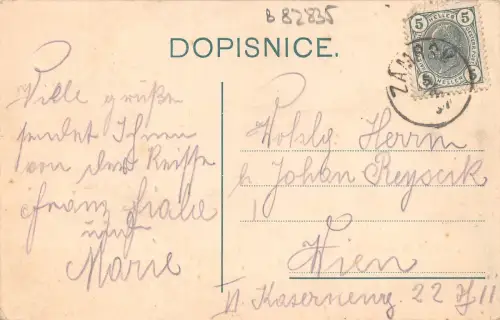 B 82835
DOPISNICE.
5 HELLER 5
5 HELLER 5
Ville grüße
sendet Ihnen
von der Reiße
Franz Fiala
und
Marie
Wohlg. Herrn
Johan Reyscik
Wien
Kaserneng. 22